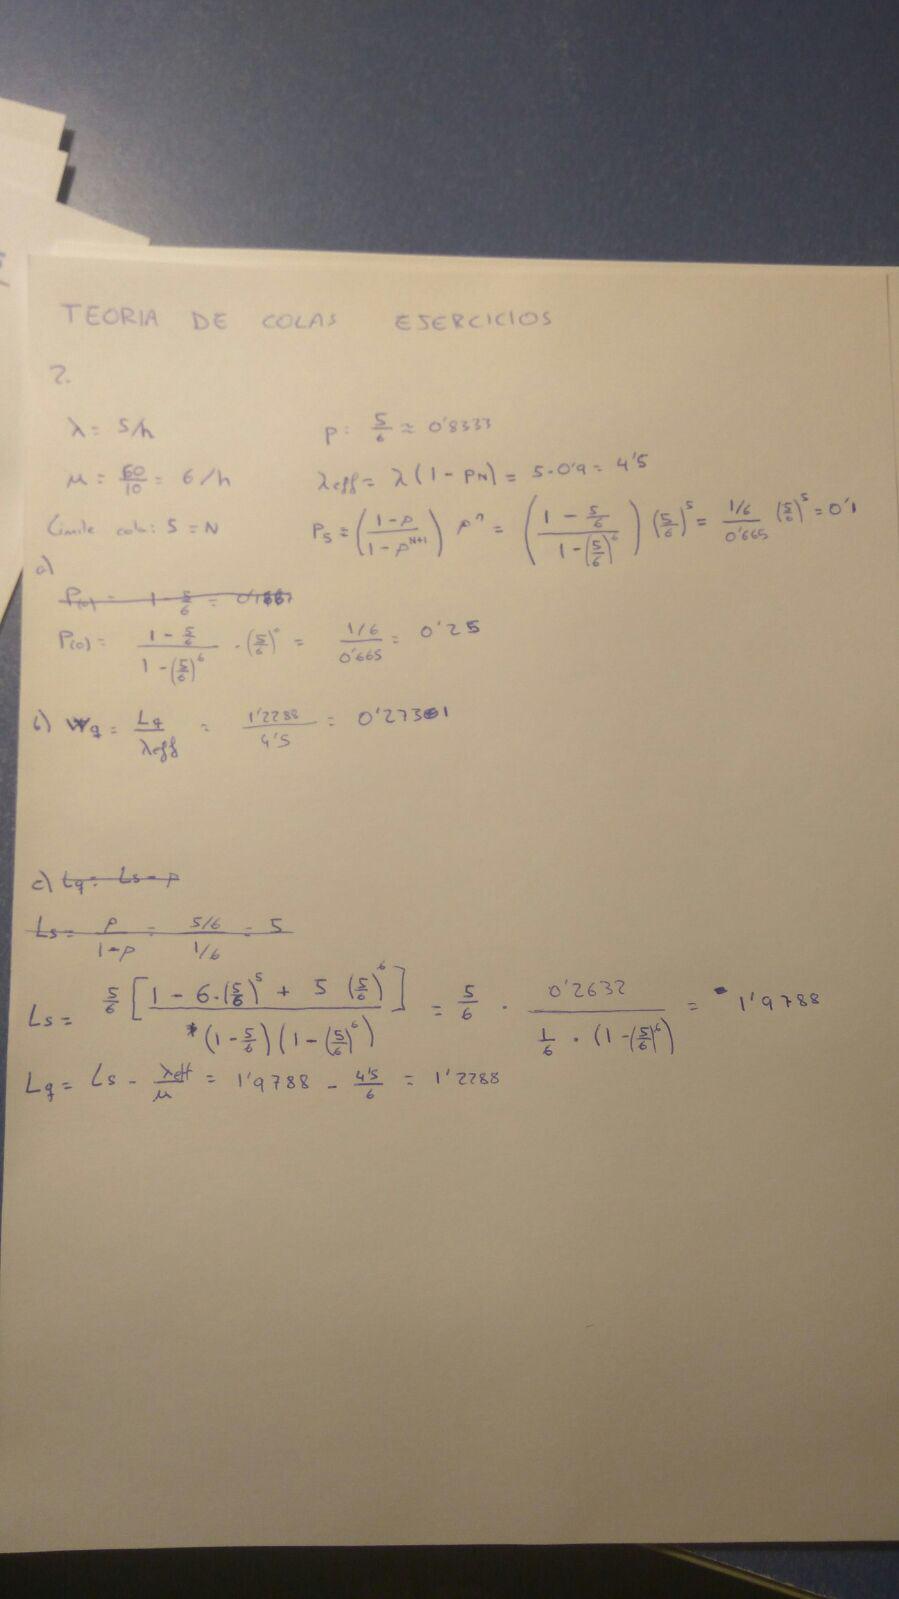 TEORIA DE COLAS EJERCICIOS
2.
λ = 5/h
ρ: 5/6 ≈ 0'8333
μ = 60/10 = 6/h
λeff = λ(1 - PN) = 5·0'9 = 4'5
Limite cola: 5 = N
P5 = ((1-ρ)/(1-ρ^(N+1))) ρ^n = ((1 - 5/6)/(1-(5/6)^6)) (5/6)^5 = (1/6)/(0'665) (5/6)^5 = 0'1
a)
P(0) = 1 - 5/6 = 0'1667
P(0) = (1 - 5/6)/(1-(5/6)^6) · (5/6)^0 = (1/6)/(0'665) = 0'25
b) Wq = Lq/λeff = 1'2288/4'5 = 0'2731
c) Lq = Ls - ρ
Ls = ρ/(1-ρ) = (5/6)/(1/6) = 5
Ls = 5/6 [1 - 6·(5/6)^5 + 5 (5/6)^6]/((1-5/6)(1-(5/6)^6)) = 5/6 · 0'2632/(1/6 · (1-(5/6)^6)) = 1'9788
Lq = Ls - λeff/μ = 1'9788 - 4'5/6 = 1'2288